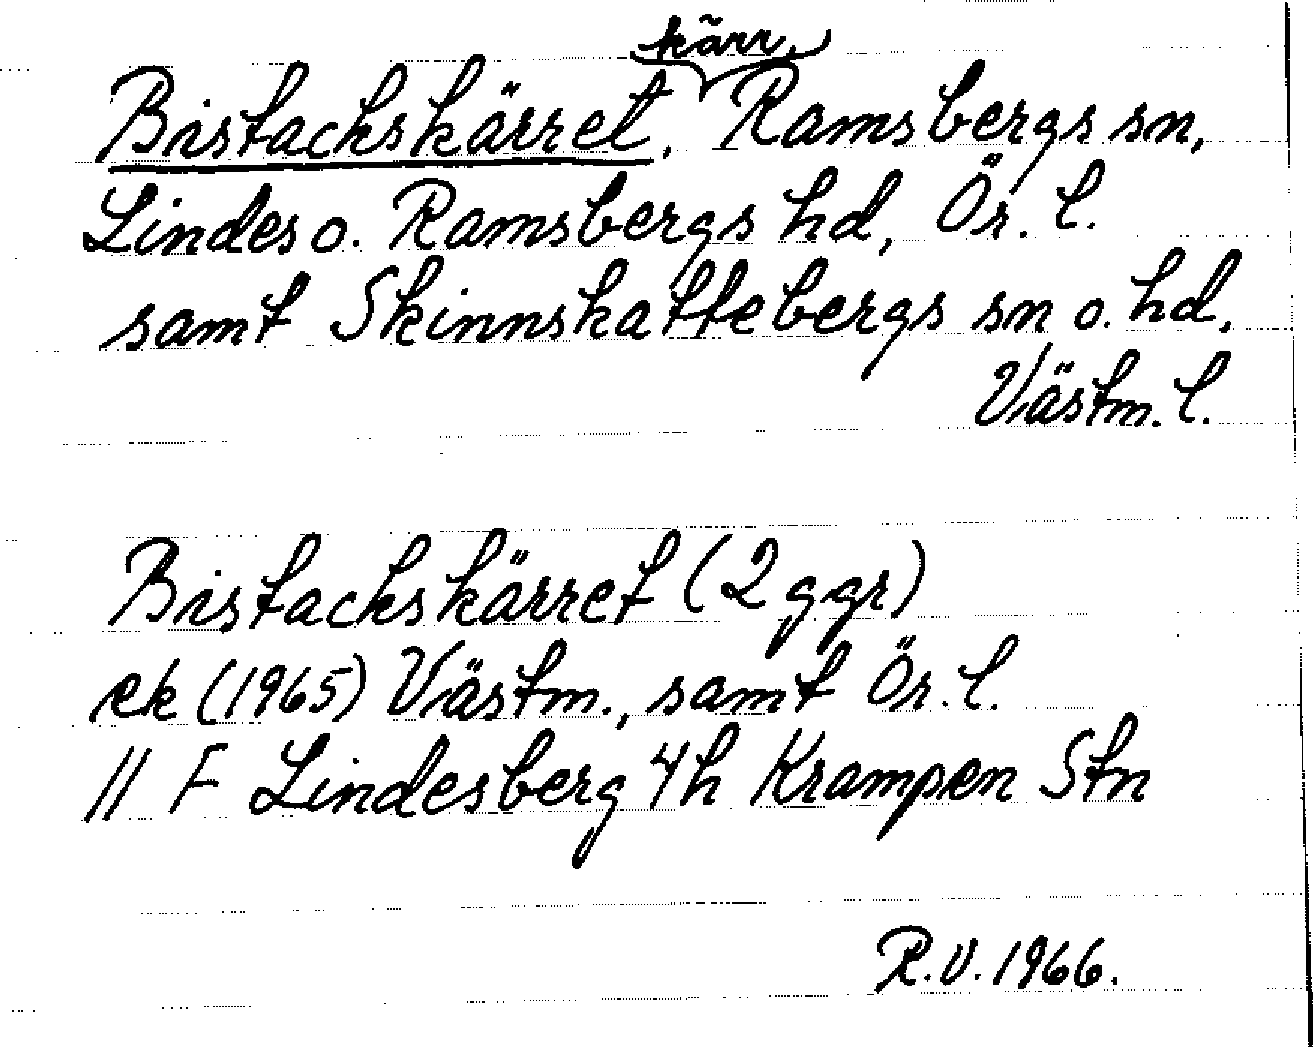 Bistackskärret, kärr, Ramsbergs sn,
Lindes o. Ramsbergs hd, Ör. l.
samt Skinnskattebergs sn o. hd,
Västm. l.
Bistackskärret (2 ggr)
ek (1965) Västm., samt Ör. l.
11 F Lindesberg 4h Krampen Stn
R.V. 1966.